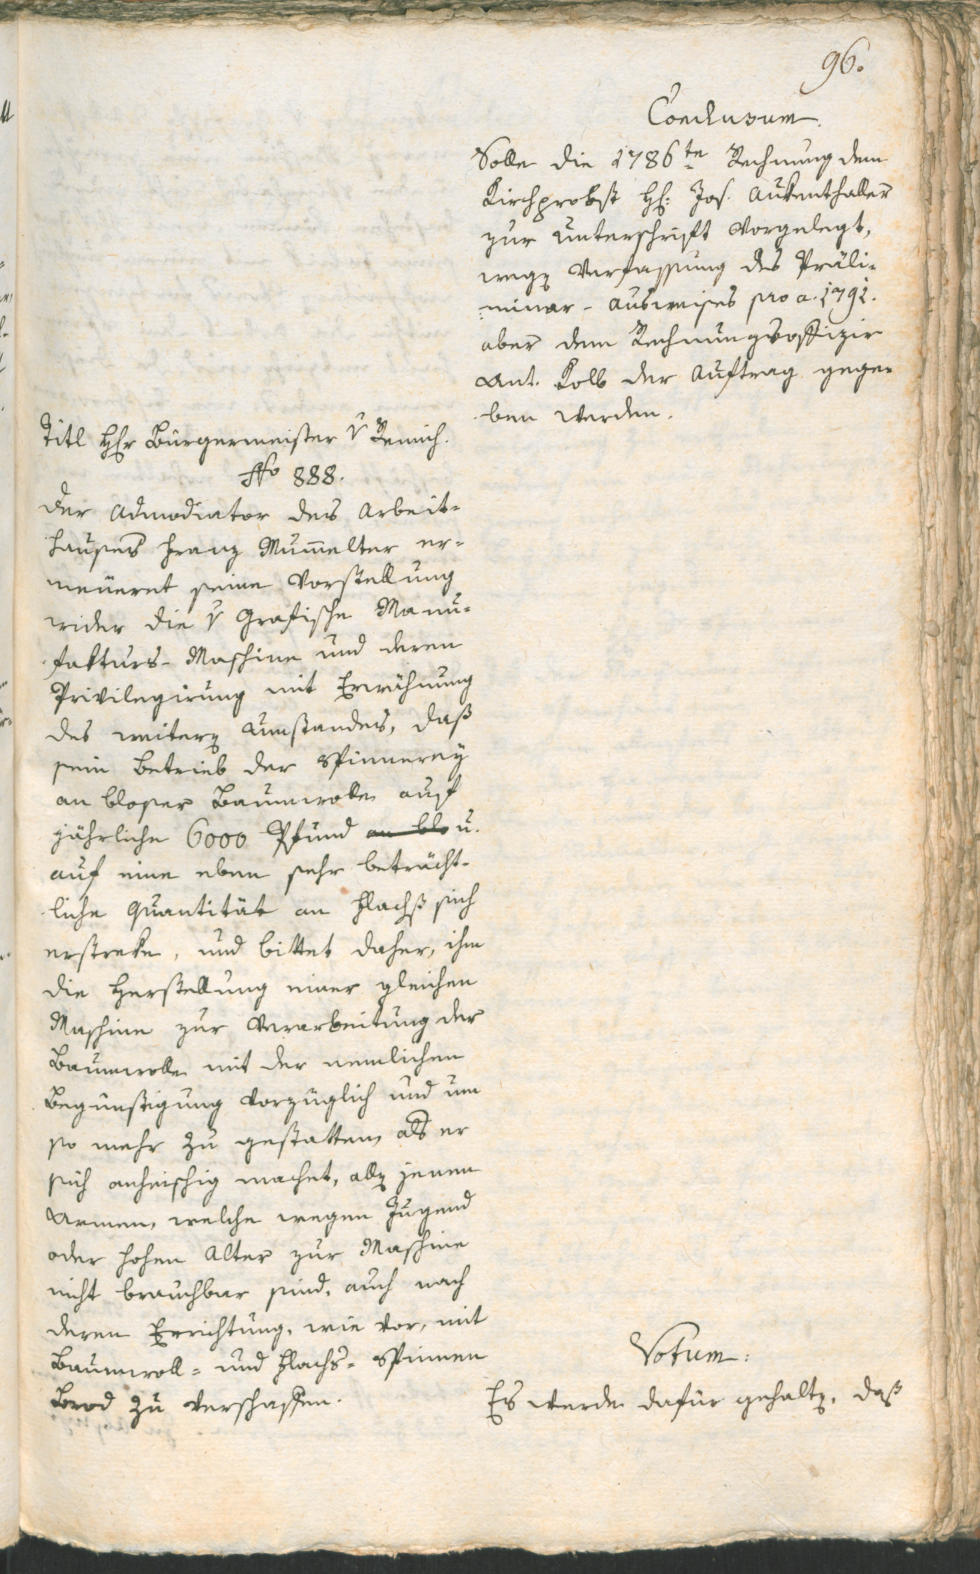 96.
Conclusum.
Solle die 1786te Rechnung dem
Kirchprobst H: Jos. Aukenthaller
zur Unterschrift vorgelegt,
wegen Verfassung des Präli-
minar-Ausweises pro a. 1791.
aber dem Rechnungsoffizir
Ant. Kolb der Auftrag gege-
ben werden.
Titl Hr Bürgermeister v Remich.
No 888.
Der Admodiator des Arbeit-
hauses Franz Mum̅elter er-
neueret seine Vorstellung
wider die v Grafische Manu-
fakturs-Maschine und deren
Privilegirung mit Erwähnung
des weitern Umstandes, daß
sein Betrieb der Spinnerey
an bloser Baumwolle auf
jährliche 6000 Pfund an blo u.
auf eine eben sehr beträcht-
liche Quantität an Flachß sich
erstreke, und bittet daher, ihm
die Herstellung einer gleichen
Maschine zur Verarbeitung der
Baumwolle mit der nemlichen
Begünstigung vorzüglich und um
so mehr zu gestatten, als er
sich anheischig machet, allen jenen
Armen, welche wegen Jugend
oder hohen Alter zur Maschine
nicht brauchbar sind, auch nach
deren Errichtung, wie vor, mit
Baumwoll- und Flachs-Spinnen
Brod zu verschaffen.
Votum:
Es werde dafür gehalten, daß